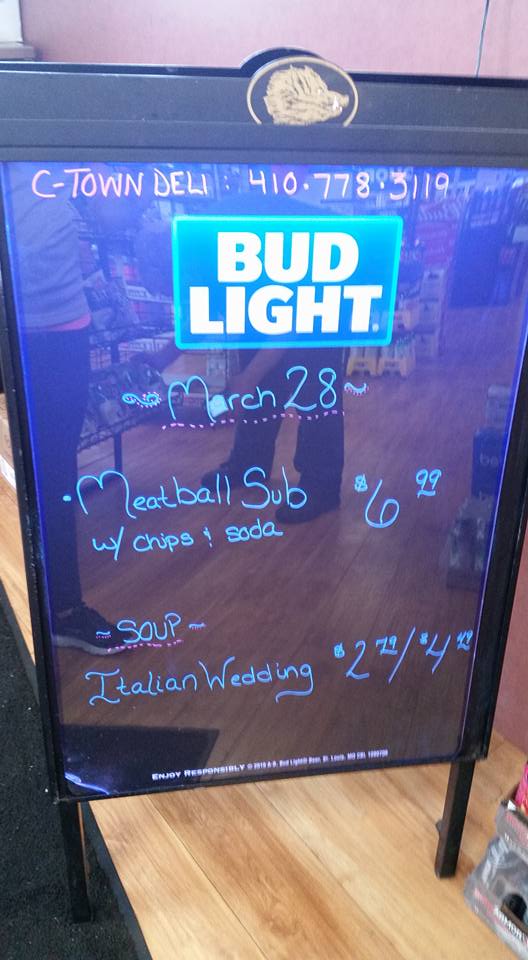 C-TOWN DELI : 410·778·3119
BUD
LIGHT
~ March 28 ~
·Meatball Sub $6 99
w/ chips & soda
~ SOUP ~
Italian Wedding $2 79/$4 49
ENJOY RESPONSIBLY